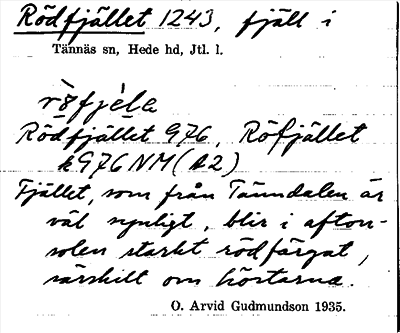 Rödfjället 1243, fjäll i
Tännäs sn, Hede hd, Jtl. l.
Rödfjället 976, Röfjället
k976NM(A2)
Fjället, som från Tänndalen är
väl synligt, blir i afton-
solen starkt rödfärgat,
särskilt om höstarna.
O. Arvid Gudmundson 1935.